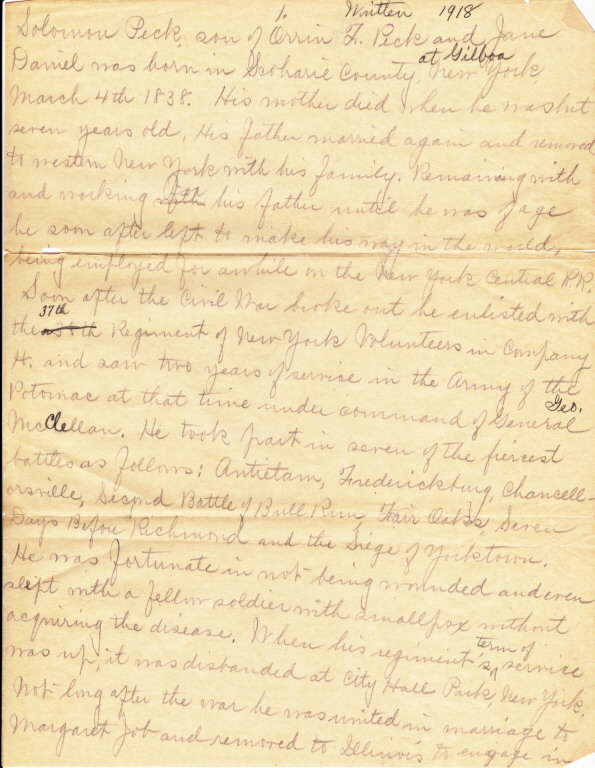 1.
Written 1918
Solomon Peck, son of Orrin F. Peck and Jane
at Gilboa
Daniel was born in Scoharie County, New York
March 4th 1838. His mother died when he was but
seven years old. His father married again and removed
to western New York with his family. Remaining with
and working with his father until he was of age
he soon after left to make his way in the world,
being employed for awhile on the New York Central R.R.
Soon after the Civil War broke out he enlisted with
37th
the 38th Regiment of New York Volunteers in Company
H. and saw two years of service in the Army of the
Potomac at that time under command of General Geo.
McClellan. He took part in seven of the fiercest
battles as follows: Antietam, Fredericksburg, Chancell-
orsville, Second Battle of Bull Run, Fair Oaks, Seven
Days Before Richmond and the Siege of Yorktown.
He was fortunate in not being wounded and even
slept with a fellow soldier with smallpox without
acquiring the disease. When his regiment's term of service
was up, it was disbanded at City Hall Park, New York.
Not long after the war he was united in marriage to
Margaret Job and removed to Illinois to engage in